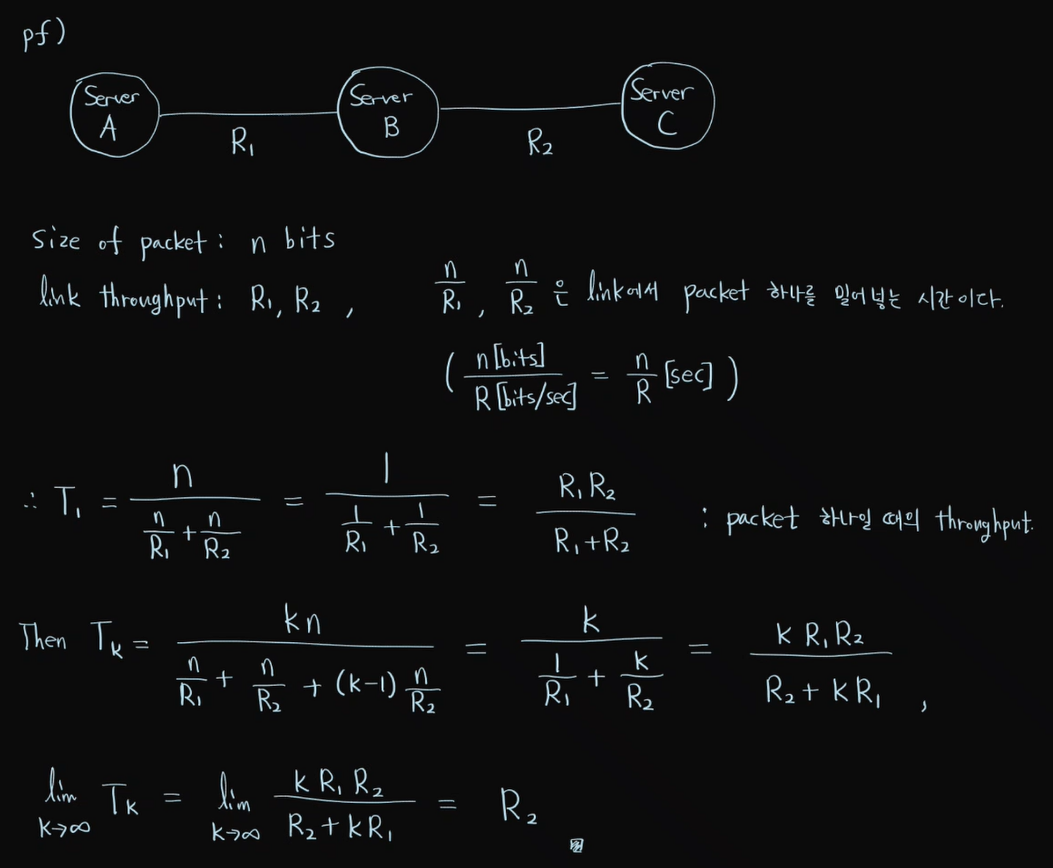 pf)
Server A Server B Server C
R₁ R₂
Size of packet : n bits
link throughput : R₁, R₂ , n/R₁ , n/R₂ 은 link에서 packet 하나를 밀어넣는 시간이다.
( n[bits] / R[bits/sec] = n/R [sec] )
∴ T₁ = n / (n/R₁ + n/R₂) = 1 / (1/R₁ + 1/R₂) = R₁R₂ / (R₁+R₂) : packet 하나일 때의 throughput.
Then Tₖ = kn / (n/R₁ + n/R₂ + (k-1) n/R₂) = k / (1/R₁ + k/R₂) = k R₁R₂ / (R₂ + kR₁) ,
lim k→∞ Tₖ = lim k→∞ k R₁ R₂ / (R₂ + kR₁) = R₂